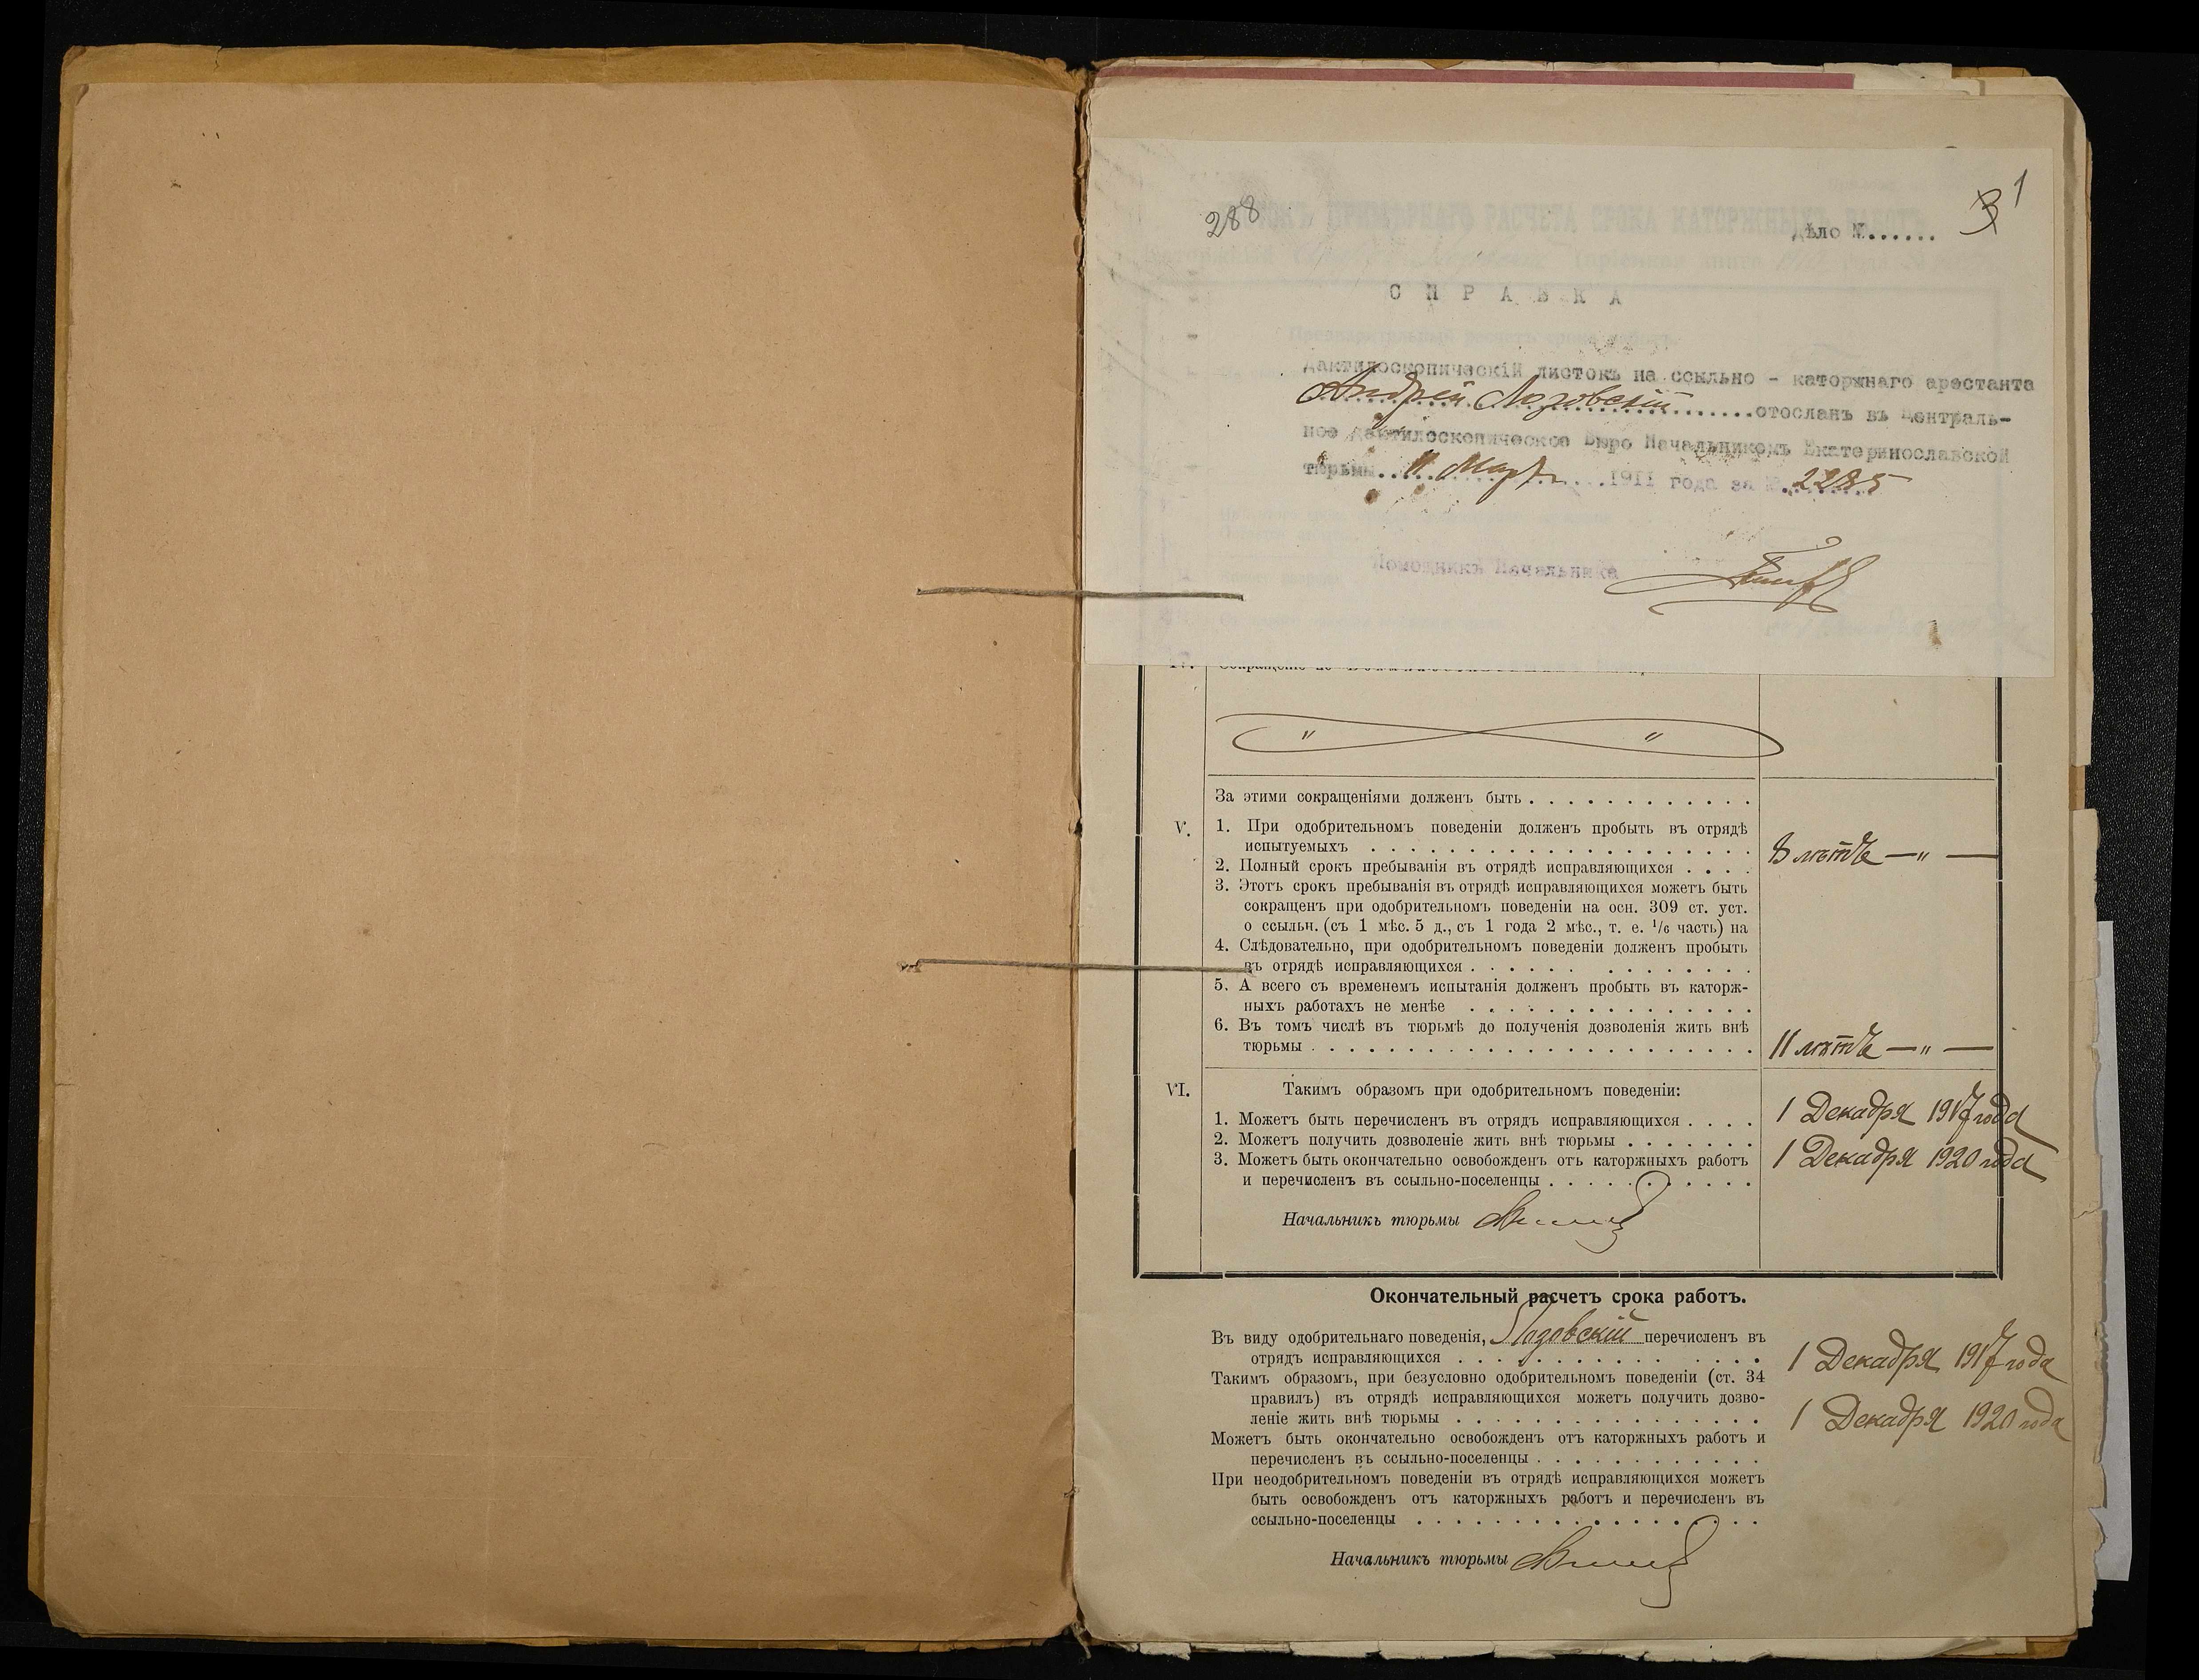 288
3 1
Дѣло №......
СПРАВКА
Дактилоскопическій листокъ на ссыльно - каторжнаго арестанта
Андрей Лозовскій отосланъ въ Централь-
ное Дактилоскопическое Бюро Начальникомъ Екатеринославской
тюрьмы 11 Марта 1911 года за № 2285
Помощникъ Начальника
За этими сокращеніями долженъ быть
V.
1. При одобрительномъ поведеніи долженъ пробыть въ отрядѣ
испытуемыхъ 8 лѣтъ — „ —
2. Полный срокъ пребыванія въ отрядѣ исправляющихся
3. Этотъ срокъ пребыванія въ отрядѣ исправляющихся можетъ быть
сокращенъ при одобрительномъ поведеніи на осн. 309 ст. уст.
о ссыльн. (съ 1 мѣс. 5 д., съ 1 года 2 мѣс., т. е. 1/6 часть) на
4. Слѣдовательно, при одобрительномъ поведеніи долженъ пробыть
въ отрядѣ исправляющихся
5. А всего съ временемъ испытанія долженъ пробыть въ каторж-
ныхъ работахъ не менѣе
6. Въ томъ числѣ въ тюрьмѣ до полученія дозволенія жить внѣ
тюрьмы 11 лѣтъ — „ —
VI.
Такимъ образомъ при одобрительномъ поведеніи:
1. Можетъ быть перечисленъ въ отрядъ исправляющихся 1 Декабря 1917 года
2. Можетъ получить дозволеніе жить внѣ тюрьмы 1 Декабря 1920 года
3. Можетъ быть окончательно освобожденъ отъ каторжныхъ работъ
и перечисленъ въ ссыльно-поселенцы
Начальникъ тюрьмы
Окончательный расчетъ срока работъ.
Въ виду одобрительнаго поведенія, Лозовскій перечисленъ въ
отрядъ исправляющихся 1 Декабря 1917 года
Такимъ образомъ, при безусловно одобрительномъ поведеніи (ст. 34
правилъ) въ отрядѣ исправляющихся можетъ получить дозво-
леніе жить внѣ тюрьмы 1 Декабря 1920 года
Можетъ быть окончательно освобожденъ отъ каторжныхъ работъ и
перечисленъ въ ссыльно-поселенцы
При неодобрительномъ поведеніи въ отрядѣ исправляющихся можетъ
быть освобожденъ отъ каторжныхъ работъ и перечисленъ въ
ссыльно-поселенцы
Начальникъ тюрьмы